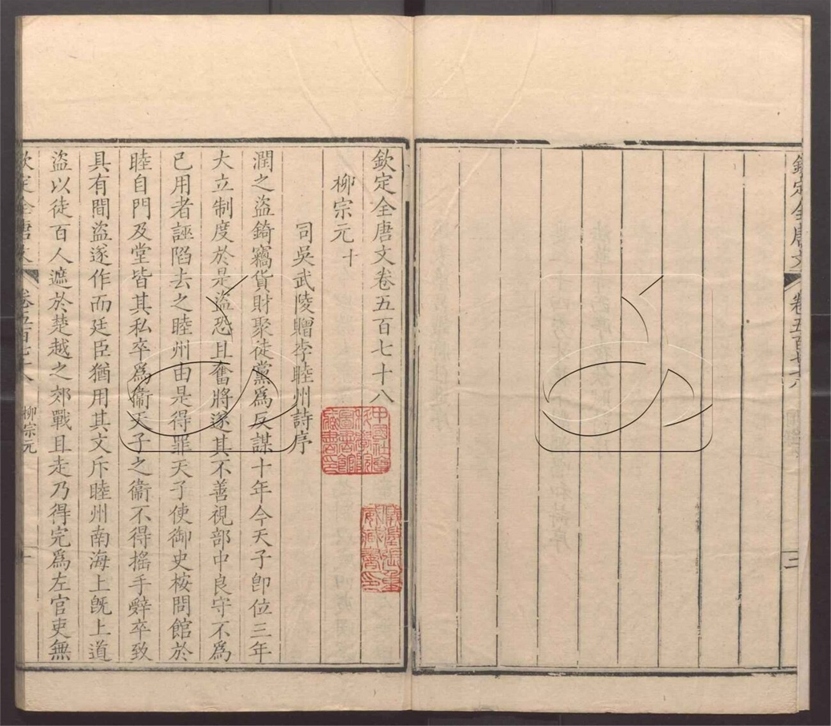 欽定全唐文 卷五百七十八 三
欽定全唐文卷五百七十八
柳宗元十
同吳武陵贈李睦州詩序
潤之盜錡竊貨財聚徒黨爲反謀十年今天子卽位三年
大立制度於是盜恐且奮將遂其不善視部中良守不爲
已用者誣陷去之睦州由是得罪天子使御史按問館於
睦自門及堂皆其私卒爲衞天子之衞不得搖手辭卒致
具有間盜遂作而廷臣猶用其文斥睦州南海上旣上道
盜以徒百人遮於楚越之郊戰且走乃得完爲左官吏無
欽定全唐文 卷五百七十八 柳宗元